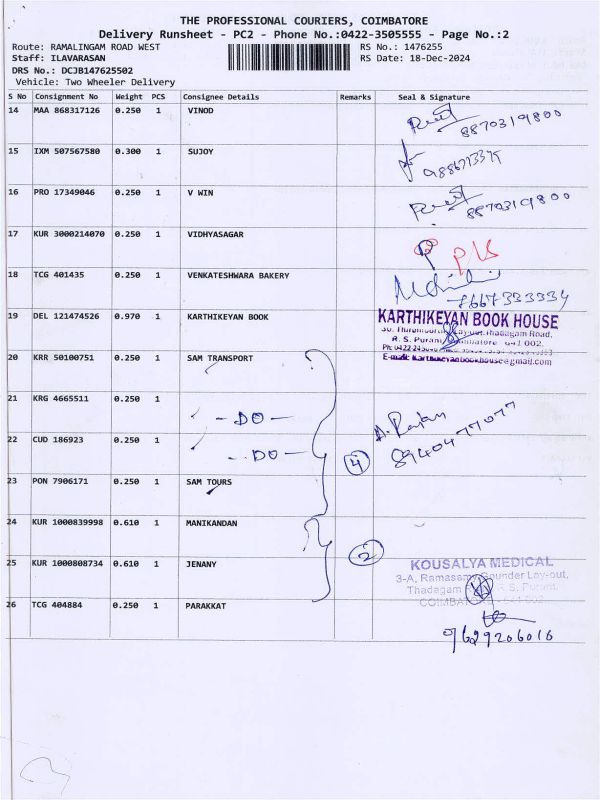 THE PROFESSIONAL COURIERS, COIMBATORE
Delivery Runsheet - PC2 - Phone No.:0422-3505555 - Page No.:2
Route: RAMALINGAM ROAD WEST RS No.: 1476255
Staff: ILAVARASAN RS Date: 18-Dec-2024
DRS No.: DCJB147625502
Vehicle: Two Wheeler Delivery
S No Consignment No Weight PCS Consignee Details Remarks Seal & Signature
14 MAA 868317126 0.250 1 VINOD
8870319800
15 IXM 507567580 0.300 1 SUJOY
16 PRO 17349046 0.250 1 V WIN
8870319800
17 KUR 3000214070 0.250 1 VIDHYASAGAR
18 TCG 401435 0.250 1 VENKATESHWARA BAKERY
7667333334
19 DEL 121474526 0.970 1 KARTHIKEYAN BOOK KARTHIKEYAN BOOK HOUSE
R. S. Puram, 641 002.
E-mail: Karthikeyanbookhouse@gmail.com
20 KRR 50100751 0.250 1 SAM TRANSPORT
21 KRG 4665511 0.250 1
- DO -
22 CUD 186923 0.250 1
- DO - 4 8940477077
23 PON 7906171 0.250 1 SAM TOURS
24 KUR 1000839998 0.610 1 MANIKANDAN
2
25 KUR 1000808734 0.610 1 JENANY KOUSALYA MEDICAL
3-A, Ramasamy Gounder Lay-out,
Thadagam R. S. Puram,
COIMBATORE 641 002
26 TCG 404884 0.250 1 PARAKKAT
9629206016